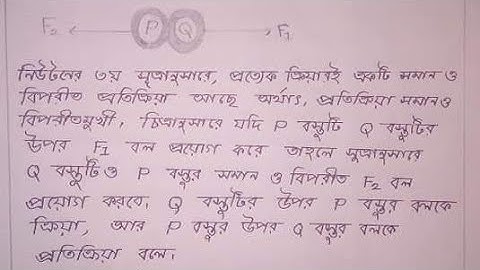 F₂ P Q F₁
নিউটনের ৩য় সূত্রানুসারে, প্রত্যেক ক্রিয়ারই একটি সমান ও
বিপরীত প্রতিক্রিয়া আছে অর্থাৎ, প্রতিক্রিয়া সমান ও
বিপরীতমুখী, চিত্রানুসারে যদি P বস্তুটি Q বস্তুটির
উপর F₁ বল প্রয়োগ করে তাহলে সূত্রানুসারে
Q বস্তুটিও P বস্তুর সমান ও বিপরীত F₂ বল
প্রয়োগ করবে। Q বস্তুটির উপর P বস্তুর বলকে
ক্রিয়া, আর P বস্তুর উপর Q বস্তুর বলকে
প্রতিক্রিয়া বলে।